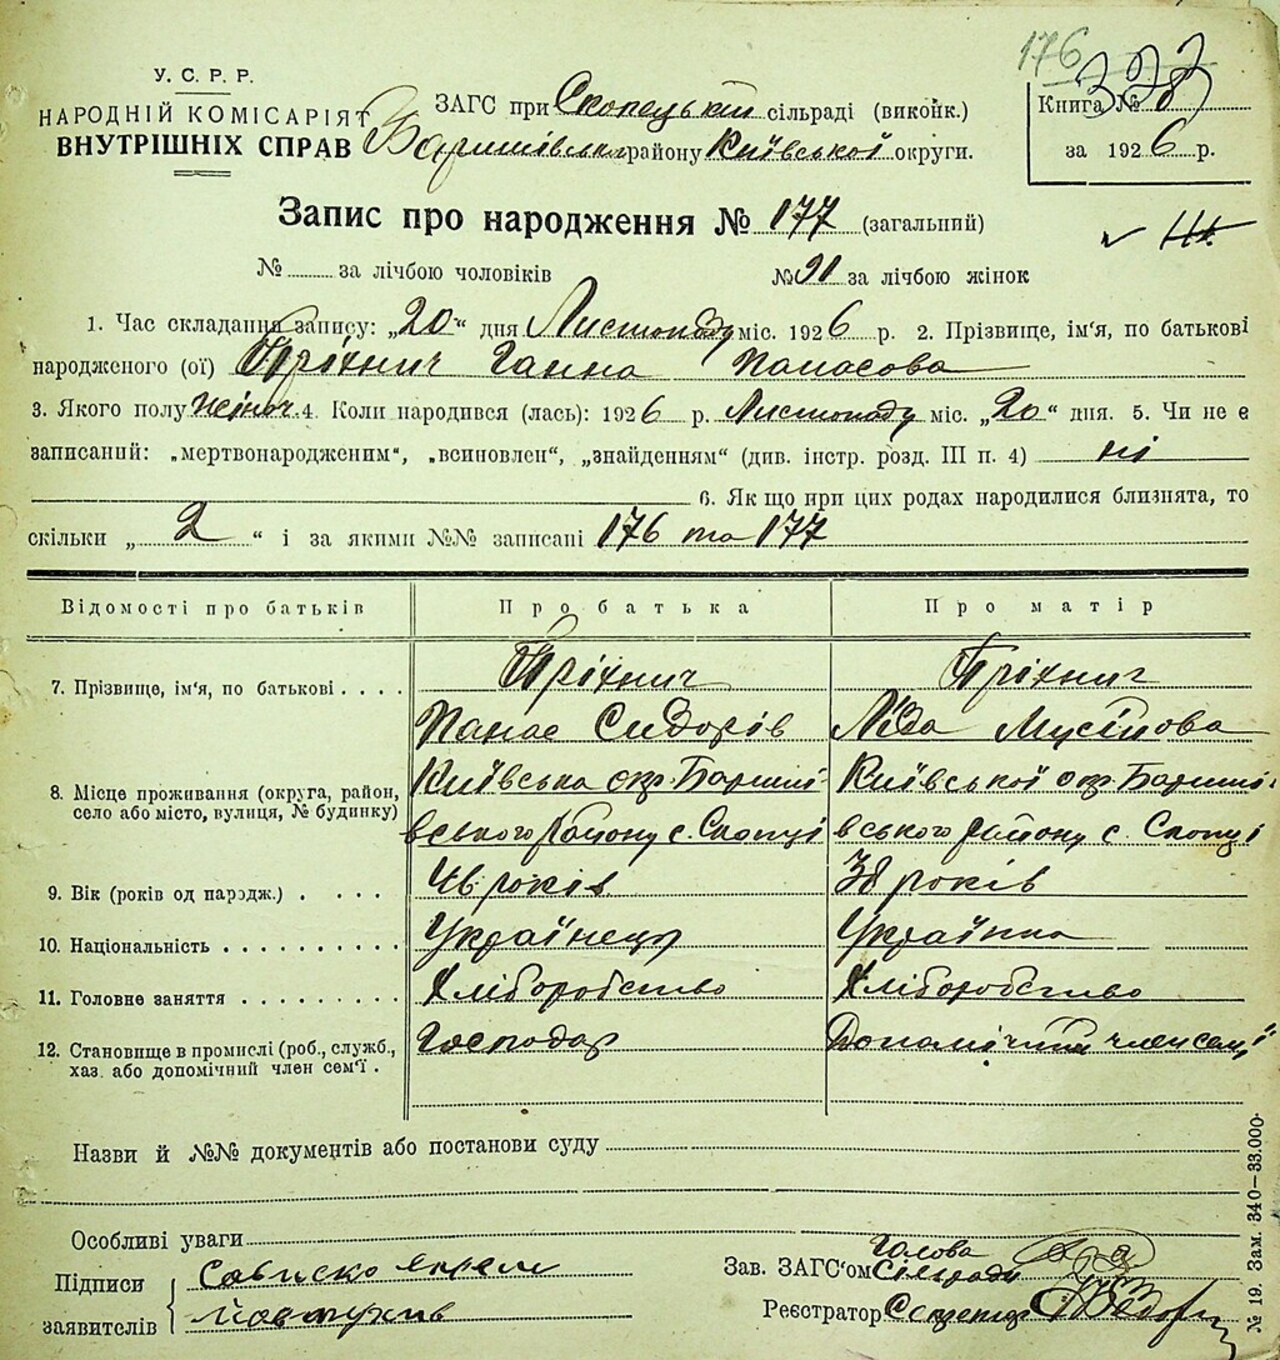 176
У. С. Р. Р.
НАРОДНІЙ КОМІСАРІЯТ
ВНУТРІШНІХ СПРАВ
ЗАГС при Скопецькій сільраді (виконк.)
Баришівськ району Київської округи.
Книга №
за 1926 р.
Запис про народження № 177 (загальний)
№ за лічбою чоловіків № 91 за лічбою жінок
1. Час складання запису: „20" дня Листопаду міс. 1926 р. 2. Прізвище, ім'я, по батькові
народженого (ої) Пріхнич Ганна Панасова
3. Якого полу жіноч. 4. Коли народився (лась): 1926 р. Листопаду міс. „20" дня. 5. Чи не є
записаний: „мертвонародженим", „всиновлен", „знайденням" (див. інстр. розд. III п. 4) ні
6. Як що при цих родах народилися близнята, то
скільки „2" і за якими №№ записані 176 та 177
Відомості про батьків Про батька Про матір
7. Прізвище, ім'я, по батькові . . . . Пріхнич Пріхнич
Панас Сидорів Ліда Мусіївова
8. Місце проживання (округа, район, село або місто, вулиця, № будинку) Київська окр. Бариші- Київської окр. Бариші-
вського району с. Скопці вського району с. Скопці
9. Вік (років од народж.) . . . . . 46 років 38 років
10. Національність . . . . . . . . . . Українець Українка
11. Головне заняття . . . . . . . . . Хліборобство Хліборобство
12. Становище в промислі (роб., служб., хаз. або допомічний член сем'ї . Господар Допомічний член сем'ї
Назви й №№ документів або постанови суду
Особливі уваги
Підписи
заявителів
Зав. ЗАГС'ом Голова Сільради
Реєстратор Секретар
№ 19. Зам. 340—33.000.